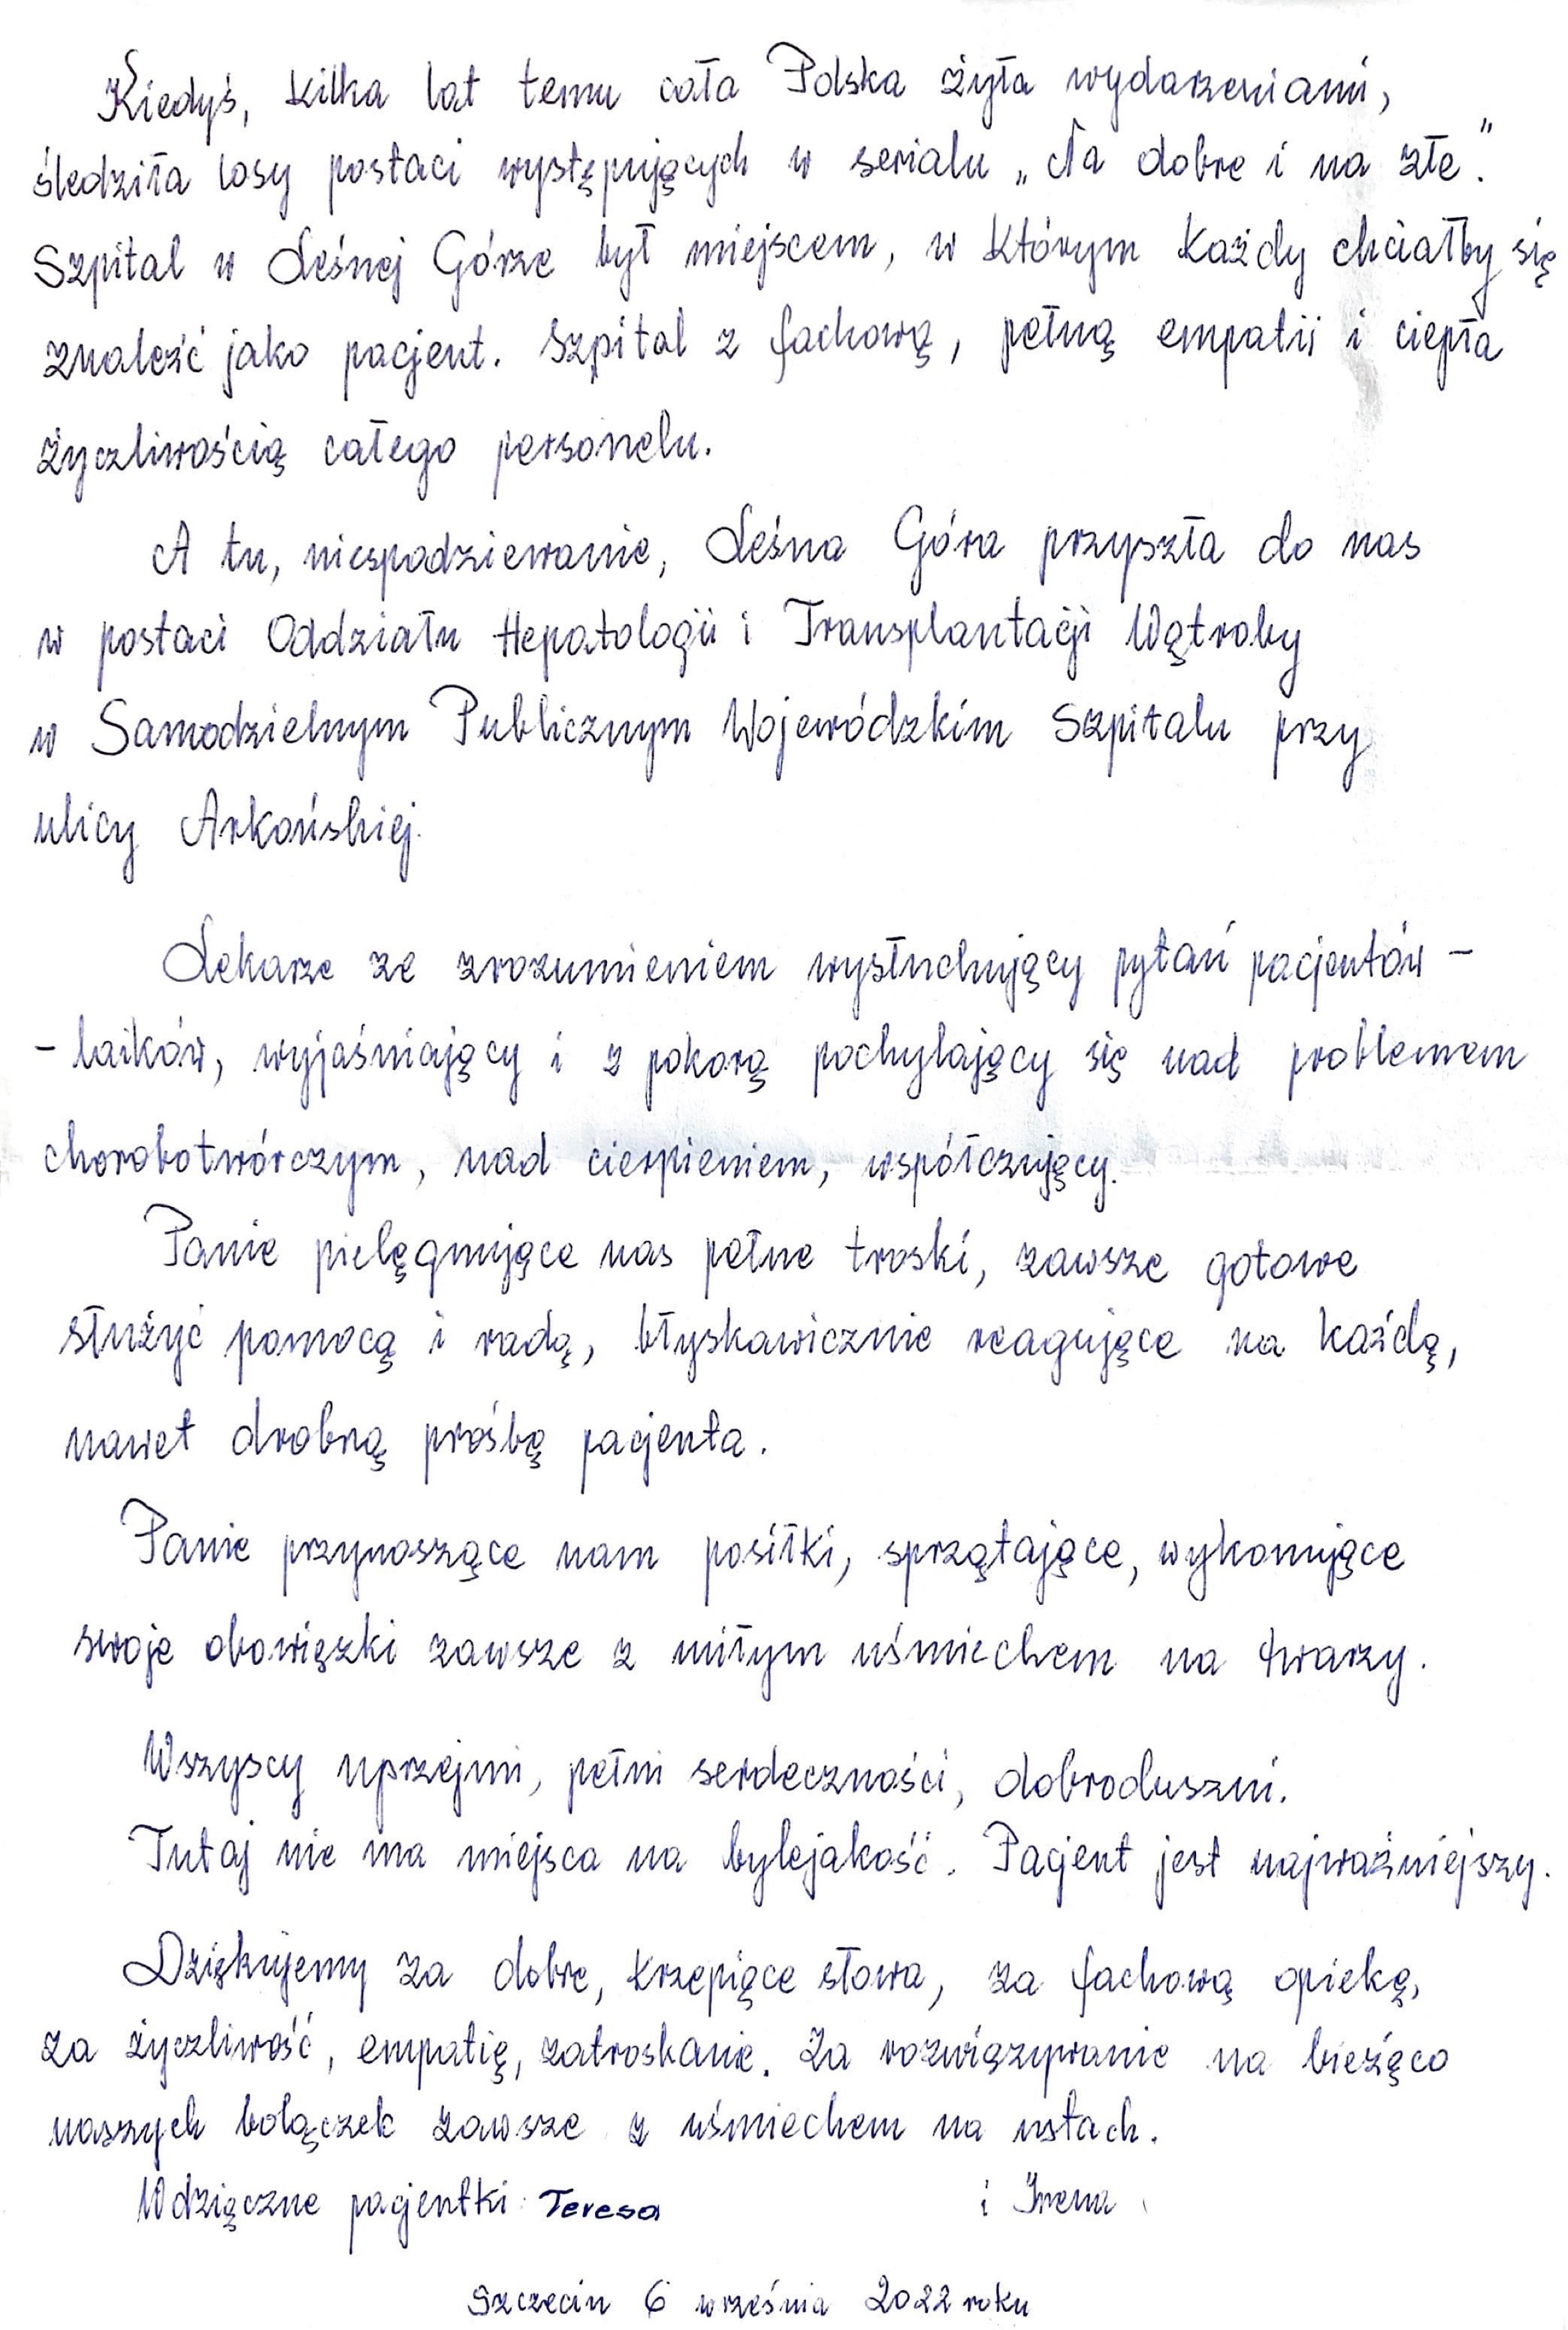 Kiedyś, kilka lat temu cała Polska żyła wydarzeniami,
śledziła losy postaci występujących w serialu „Na dobre i na złe."
Szpital w Leśnej Górze był miejscem, w którym każdy chciałby się
znaleźć jako pacjent. Szpital z fachową, pełną empatii i ciepła
życzliwością całego personelu.
A tu, niespodziewanie, Leśna Góra przyszła do nas
w postaci Oddziału Hepatologii i Transplantacji Wątroby
w Samodzielnym Publicznym Wojewódzkim Szpitalu przy
ulicy Arkońskiej.
Lekarze ze zrozumieniem wysłuchujący pytań pacjentów -
- laików, wyjaśniający i z pokorą pochylający się nad problemem
chorobotwórczym, nad cierpieniem, współczujący.
Panie pielęgnujące nas pełne troski, zawsze gotowe
służyć pomocą i radą, błyskawicznie reagujące na każdą,
nawet drobną prośbę pacjenta.
Panie przynoszące nam posiłki, sprzątające, wykonujące
swoje obowiązki zawsze z miłym uśmiechem na twarzy.
Wszyscy uprzejmi, pełni serdeczności, dobroduszni.
Tutaj nie ma miejsca na bylejakość. Pacjent jest najważniejszy.
Dziękujemy za dobre, krzepiące słowa, za fachową opiekę,
za życzliwość, empatię, zatroskanie. Za rozwiązywanie na bieżąco
naszych bolączek zawsze z uśmiechem na ustach.
Wdzięczne pacjentki: Teresa i Irena
Szczecin 6 września 2022 roku